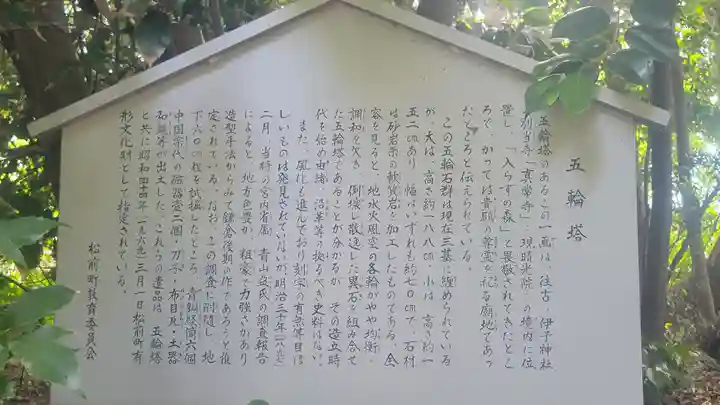 五輪塔
五輪塔のあるこの一画は、往古・伊予神社
の別当寺「真常寺」・現晴光院」の境内に位
置し、「入らずの森」と畏敬されてきたとこ
ろで、かつては貴顕の尊霊を祀る廟地であっ
ただところと伝えられている。
この五輪石群は現在三基に纏められている
が、大は、高さ約一八八㎝、小は、高さ約一
五二㎝あり、幅はいずれも約七〇㎝で、石材
は砂岩系の軟質岩を加工したものである。全
容を見ると、地水火風空の各輪がやや均衡・
調和を欠き、倒壊し散逸した異石を組み合せ
た五輪塔であることが分かるが、その造立時
代を始め由緒・沿革等の拠るべき史料はない。
また、風化も進んでおり刻字の有無等目ぼ
しいものは発見されていないが明治三十年
二月、当時の宮内省属、青山 氏の調査報告
によると、地方色豊か、粗豪で力強さがあり
造型手法からみて鎌倉後期の作であると推
定されている。なお、この調査に附随し、地
下六〇㎝程を試掘したところ、青銅経筒六個
中国宋代の磁器壺二個・刀子・布目瓦・土器
石組等が出土した。これらの遺品は、五輪塔
と共に昭和四十四年三月一日松前町有
形文化財として、指定されている。
松前町教育委員会